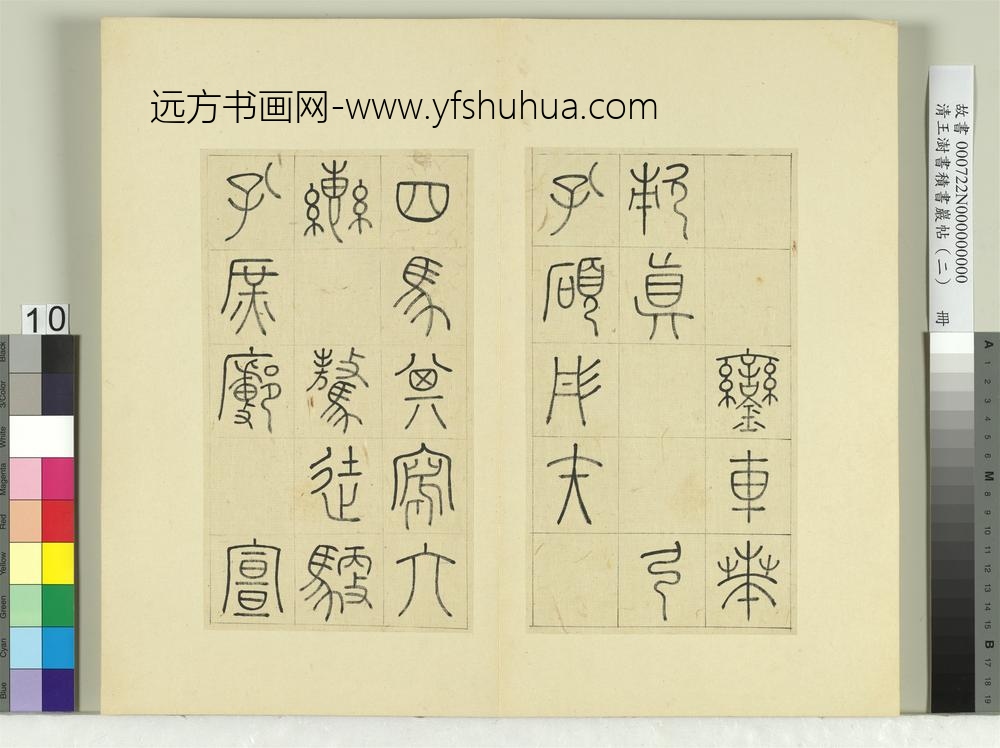 远方书画网-www.yfshuhua.com
鑾車𠦪
敕真弓
孔碩彤矢
四馬其寫六
轡驁徒馭
孔庶鄜宣
故書 000722N000000000
清王澍書積書巖帖(二) 冊
10
Black
3/Color
White
Magenta
Red
Yellow
Green
Cyan
Blue
A
1
2
3
4
5
6
M
8
9
10
11
12
13
14
15
B
17
18
19